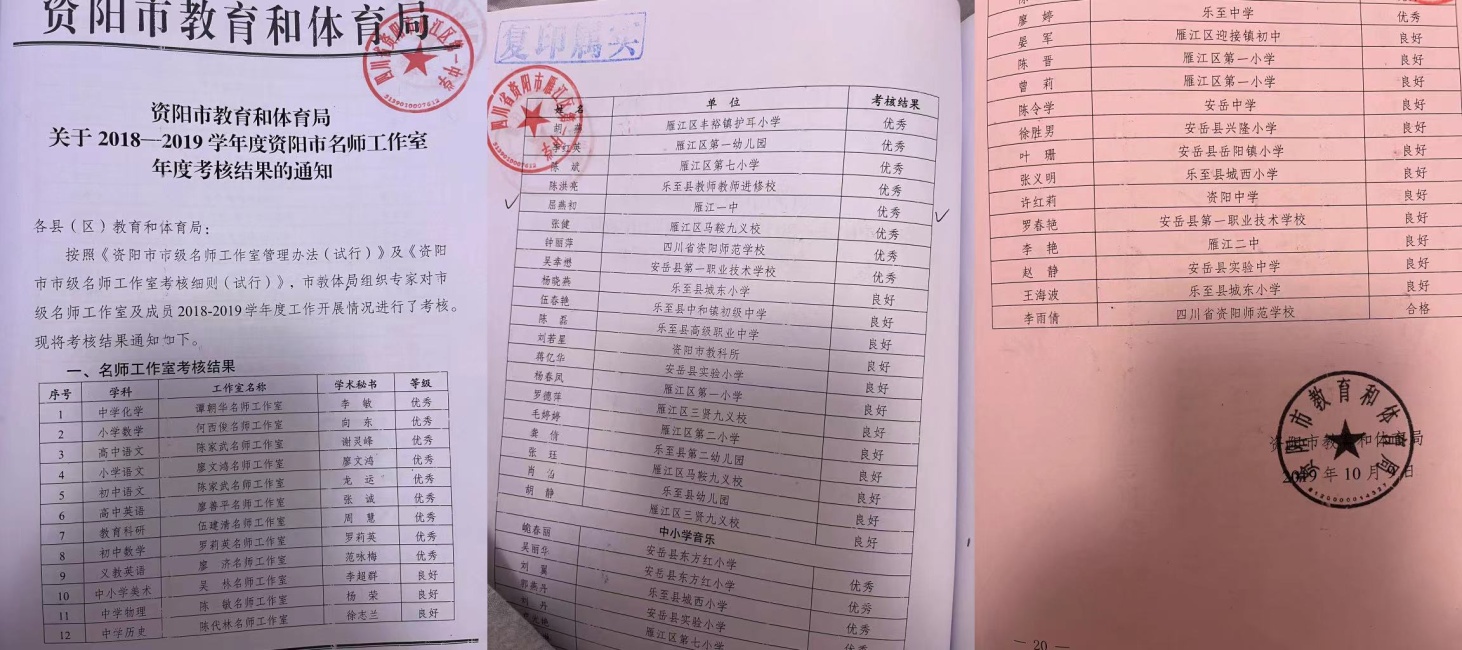 资阳市教育和体育局
资阳市教育和体育局
关于 2018—2019 学年度资阳市名师工作室
年度考核结果的通知
各县（区）教育和体育局：
按照《资阳市市级名师工作室管理办法（试行）》及《资阳
市市级名师工作室考核细则（试行）》，市教体局组织专家对市
级名师工作室及成员2018-2019学年度工作开展情况进行了考核。
现将考核结果通知如下。
一、名师工作室考核结果
序号 学科 工作室名称 学术秘书 等级
1 中学化学 谭朝华名师工作室 李 敏 优秀
2 小学数学 何西俊名师工作室 向 东 优秀
3 高中语文 陈家武名师工作室 谢灵峰 优秀
4 小学语文 廖文鸿名师工作室 廖文鸿 优秀
5 初中语文 陈家武名师工作室 龙 运 优秀
6 高中英语 廖善平名师工作室 张 诚 优秀
7 教育科研 伍建清名师工作室 周 慧 优秀
8 初中数学 罗莉英名师工作室 罗莉英 优秀
9 义教英语 廖 济名师工作室 范咏梅 优秀
10 中小学美术 吴 林名师工作室 李超群 良好
11 中学物理 陈 敏名师工作室 杨 荣 良好
12 中学历史 陈代林名师工作室 徐志兰 良好
复印属实
名 单 位 考核结果
胡 雁江区丰裕镇护耳小学 优秀
红英 雁江区第一幼儿园 优秀
陈 斌 雁江区第七小学 优秀
陈洪亮 乐至县教师教师进修校 优秀
屈燕初 雁江一中 优秀
张健 雁江区马鞍九义校 优秀
钟丽萍 四川省资阳师范学校 优秀
吴幸懋 安岳县第一职业技术学校 优秀
杨晓燕 乐至县城东小学 良好
伍春艳 乐至县中和镇初级中学 良好
陈 磊 乐至县高级职业中学 良好
刘若星 资阳市教科所 良好
蒋忆华 安岳县实验小学 良好
杨春凤 雁江区第一小学 良好
罗德萍 雁江区三贤九义校 良好
毛婷婷 雁江区第二小学 良好
龚 倩 乐至县第二幼儿园 良好
张 珏 雁江区马鞍九义校 良好
肖 乐至县幼儿园 良好
胡 静 雁江区三贤九义校 良好
中小学音乐
鲍春丽 安岳县东方红小学 优秀
吴丽华 安岳县东方红小学 优秀
刘 翼 乐至县城西小学 优秀
郭燕丹 安岳县实验小学
丹 雁江区第七小学
廖 婷 乐至中学 优秀
晏 军 雁江区迎接镇初中 良好
陈 晋 雁江区第一小学 良好
曾 莉 雁江区第一小学 良好
陈令学 安岳中学 良好
徐胜男 安岳县兴隆小学 良好
叶 珊 安岳县岳阳镇小学 良好
张义明 乐至县城西小学 良好
许红莉 资阳中学 良好
罗春艳 安岳县第一职业技术学校 良好
李 艳 雁江二中 良好
赵 静 安岳县实验中学 良好
王海波 乐至县城东小学 良好
李雨倩 四川省资阳师范学校 合格
资阳市教育和体育局
2019 年 10 月 日
— 20 —